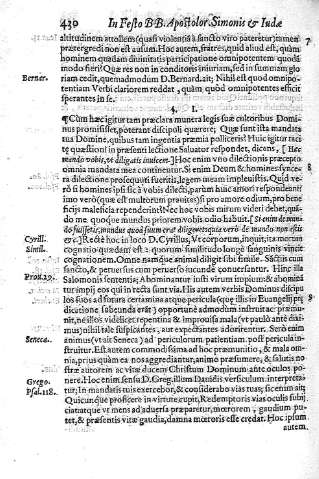 430 In Festo BB. Apostolor. Simonis & Iudæ
altitudinem attollens (quasi violẽsiâ à sancto viro pateretur) tamen
prætergredi non est ausum. Hoc autem, fratres, quid aliud est, quàm
hominem quadam divinitatis participatione omnipotentem quodã
modo fieri? Quæ res non in conditoris injuriam, sed in summam glo
riam cedit, quemadmodum D. Bernard. ait; Nihil est quod omnipo-
Berner.
tentiam Verbi clariorem reddat, quàm quòd omnipotentes efficit
sperantes in se.
§. I.
¶ Cùm hæc igitur tam præclara munera legis suæ cultoribus Domi-
nus promisisset, poterant discipuli quærere; Quæ sunt ista mandata
tua Domine, quibus tam ingentia præmia polliceris? Huic igitur taci-
tæ quæstioni in præsenti lectione Salvator respondet, dicens, [ Hæc
mando vobis, ut diligatis invicem. ] Hoc enim uno dilectionis præcepto
omnia mandata mea continentur. Si enim Deum & homines syncera
8
dilectione prosequuti fueritis, legem meam implestis. Quòd ve-
rò si homines ipsi sic à vobis dilecti, parùm huic amori respondentes
imo verò (quæ est multorum pravitas) si pro amore odium, pro bene-
ficijs maleficia rependerint; nec hoc vobis mirum videri debet, quã-
do me quoque mundus priorem vobis odio habuit. [ Si enim de mun-
do fuissetis, mundus quod suum erat diligeret: quia verò de mundo non estis
&c. ] Rectè hoc in loco D. Cyrillus, Ut corporum, inquit, ita morum
Cyrill.
cognatio quædam est: & morum similitudo longè sanguinis vincit
Simile.
cognationem. Omne namque animal diligit sibi simile. Sanctus cum
sancto, & perversus cum perverso jucundè conversantur. Hinc illa
Salomonis sententia; Abominantur justi virum impium: & abomina-
Prov. 29.
tur impij eos qui in recta sunt via. His autem verbis Dominus discipu
los suos ad futura certamina atque pericula (quæ illis in Euangelij præ
9
dicatione subeunda erãt) opportunè admodum instruit ac præmu-
nit, ne illos videlicet repentina & improvisa mala (ut paulò antè dixi-
mus) nihil tale suspicantes, aut expectantes adorirentur. Serò enim
Seneca.
animus (ut ait Seneca) ad periculorum patientiam post pericula in-
struitur. Est autem commodissima ad hoc præmunitio, & mala om-
nia, prius quàm ea nos aggrediantur, animo præsumere, & salutis no
stræ autorem ac vitæ ducem Christum Dominum ante oculos po-
nere. Hoc enim sensu D. Greg. illum Davidis versiculum interpreta-
Grego.
tur, In mandatis tuis exercebor, & considerabo vias tuas; sic enim ait;
Psal. 118.
Quicunque proficere in virtute cupit, Redemptoris vias oculis subij
ciat: atque ut mens ad adversa præparetur, mœrorem, gaudium pu-
tet, & præsentis vitæ gaudia, damna mœroris esse credat. Hoc ipsum
autem